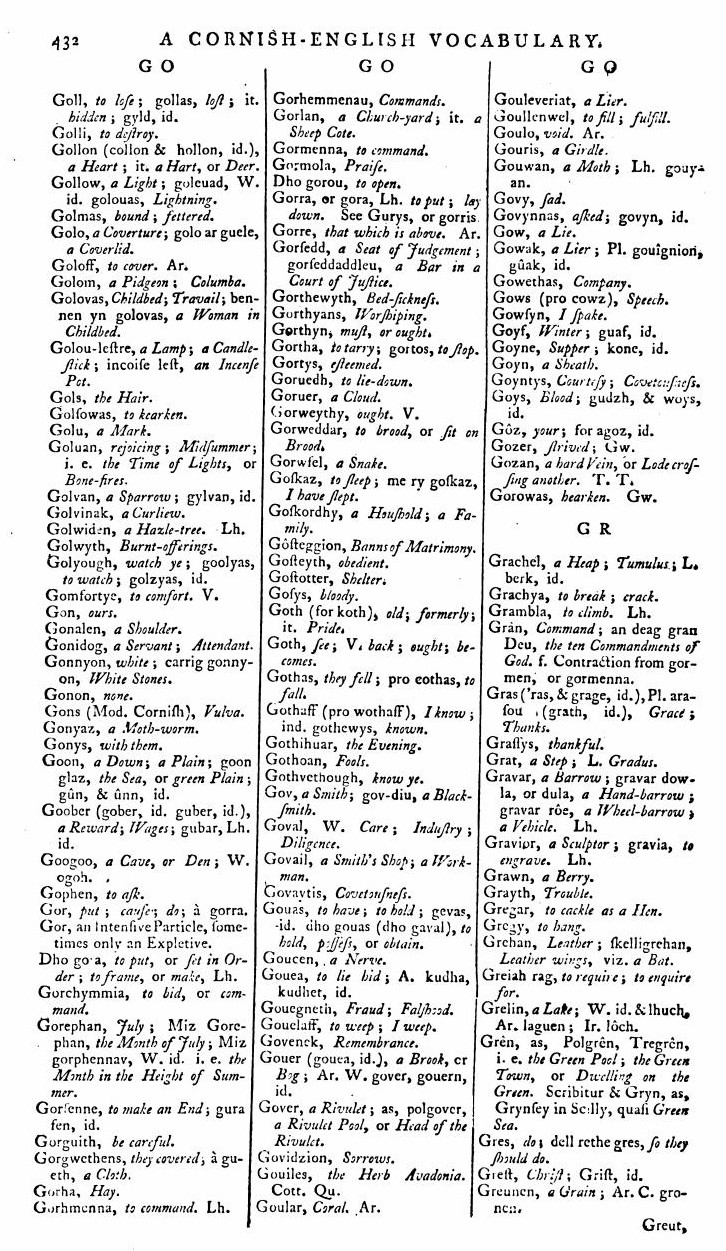 432 A CORNISH-ENGLISH VOCABULARY.
GO
Goll, to loſe; gollas, loſt; it.
hidden; gyld, id.
Golli, to deſtroy.
Gollon (collon & hollon, id.),
a Heart; it. a Hart, or Deer.
Gollow, a Light; goleuad, W.
id. golouas, Lightning.
Golmas, bound; fettered.
Golo, a Coverture; golo ar guele,
a Coverlid.
Goloff, to cover. Ar.
Golom, a Pidgeon: Columba.
Golovas, Childbed; Travail; ben-
nen yn golovas, a Woman in
Childbed.
Golou-leſtre, a Lamp; a Candle-
ſtick; incoiſe leſt, an Incenſe
Pot.
Gols, the Hair.
Golſowas, to hearken.
Golu, a Mark.
Goluan, rejoicing; Midſummer;
i. e. the Time of Lights, or
Bone-fires.
Golvan, a Sparrow; gylvan, id.
Golvinak, a Curliew.
Golwiden, a Hazle-tree. Lh.
Golwyth, Burnt-offerings.
Golyough, watch ye; goolyas,
to watch; golzyas, id.
Gomfortye, to comfort. V.
Gon, ours.
Gonalen, a Shoulder.
Gonidog, a Servant; Attendant.
Gonnyon, white; carrig gonny-
on, White Stones.
Gonon, none.
Gons (Mod. Corniſh), Vulva.
Gonyaz, a Moth-worm.
Gonys, with them.
Goon, a Down; a Plain; goon
glaz, the Sea, or green Plain;
gûn, & ûnn, id.
Goober (gober, id. guber, id.),
a Reward; Wages; gubar, Lh.
id.
Googoo, a Cave, or Den; W.
ogoh.
Gophen, to aſk.
Gor, put; cauſe; do; à gorra.
Gor, an Intenſive Particle, ſome-
times only an Expletive.
Dho gora, to put, or ſet in Or-
der; to frame, or make, Lh.
Gorchymmia, to bid, or com-
mand.
Gorephan, July; Miz Gore-
phan, the Month of July; Miz
gorphennav, W. id. i. e. the
Month in the Height of Sum-
mer.
Gorfenne, to make an End; gura
fen, id.
Gorguith, be careful.
Gorgwethens, they covered; à gu-
eth, a Cloth.
Gorha, Hay.
Gorhmenna, to command. Lh.
GO
Gorhemmenau, Commands.
Gorlan, a Church-yard; it. a
Sheep Cote.
Gormenna, to command.
Gormola, Praiſe.
Dho gorou, to open.
Gorra, or gora, Lh. to put; lay
down. See Gurys, or gorris.
Gorre, that which is above. Ar.
Gorſedd, a Seat of Judgement;
gorſeddaddleu, a Bar in a
Court of Juſtice.
Gorthewyth, Bed-ſickneſs.
Gorthyans, Worſhiping.
Gorthyn, muſt, or ought.
Gortha, to tarry; gortos, to ſtop.
Gortys, eſteemed.
Goruedh, to lie-down.
Goruer, a Cloud.
Gorweythy, ought. V.
Gorweddar, to brood, or ſit on
Brood.
Gorwfel, a Snake.
Goſkaz, to ſleep; me ry goſkaz,
I have ſlept.
Goſkordhy, a Houſhold; a Fa-
mily.
Gôſteggion, Banns of Matrimony.
Goſteyth, obedient.
Goſtotter, Shelter.
Goſys, bloody.
Goth (for koth), old; formerly;
it. Pride.
Goth, ſee; V. back; ought; be-
comes.
Gothas, they fell; pro eothas, to
fall.
Gothaff (pro wothaff), I know;
ind. gothewys, known.
Gothihuar, the Evening.
Gothoan, Fools.
Gothvethough, know ye.
Gov, a Smith; gov-diu, a Black-
ſmith.
Goval, W. Care; Induſtry;
Diligence.
Govail, a Smith's Shop; a Work-
man.
Govaytis, Covetouſneſs.
Gouas, to have; to hold; gevas,
id. dho gouas (dho gaval), to
hold, poſſeſs, or obtain.
Goucen, a Nerve.
Gouea, to lie hid; A. kudha,
kudhet, id.
Gouegneth, Fraud; Falſhood.
Gouelaff, to weep; I weep.
Govenek, Remembrance.
Gouer (gouea, id.), a Brook, or
Bog; Ar. W. gover, gouern,
id.
Gover, a Rivulet; as, polgover,
a Rivulet Pool, or Head of the
Rivulet.
Govidzion, Sorrows.
Gouiles, the Herb Avadonia.
Cott. Qu.
Goular, Coral. Ar.
GO
Gouleveriat, a Lier.
Goullenwel, to fill; fulfill.
Goulo, void. Ar.
Gouris, a Girdle.
Gouwan, a Moth; Lh. gouy-
an.
Govy, ſad.
Govynnas, aſked; govyn, id.
Gow, a Lie.
Gowak, a Lier; Pl. gouîgnion,
gûak, id.
Gowethas, Company.
Gows (pro cowz), Speech.
Gowſyn, I ſpake.
Goyf, Winter; guaf, id.
Goyne, Supper; kone, id.
Goyn, a Sheath.
Goyntys, Courteſy; Covetouſneſs.
Goys, Blood; gudzh, & woys,
id.
Gôz, your; for agoz, id.
Gozer, ſtrived; Gw.
Gozan, a hard Vein, or Lode croſ-
ſing another. T. T.
Gorowas, hearken. Gw.
GR
Grachel, a Heap; Tumulus; L.
berk, id.
Grachya, to break; crack.
Grambla, to climb. Lh.
Grân, Command; an deag gran
Deu, the ten Commandments of
God. f. Contraction from gor-
men, or gormenna.
Gras ('ras, & grage, id.), Pl. ara-
ſou (grath, id.), Grace;
Thanks.
Graſſys, thankful.
Grat, a Step; L. Gradus.
Gravar, a Barrow; gravar dow-
la, or dula, a Hand-barrow;
gravar rôe, a Wheel-barrow;
a Vehicle. Lh.
Gravior, a Sculptor; gravia, to
engrave. Lh.
Grawn, a Berry.
Grayth, Trouble.
Gregar, to cackle as a Hen.
Gregy, to hang.
Grehan, Leather; ſkelligrehan,
Leather wings, viz. a Bat.
Greiah rag, to require; to enquire
for.
Grelin, a Lake; W. id. & lhuch,
Ar. laguen; Ir. lôch.
Grên, as, Polgrên, Tregrên,
i. e. the Green Pool; the Green
Town, or Dwelling on the
Green. Scribitur & Gryn, as,
Grynſey in Scilly, quaſi Green
Sea.
Gres, do; dell rethe gres, ſo they
ſhould do.
Greſt, Chriſt; Griſt, id.
Greunen, a Grain; Ar. C. gro-
nen.
Greut,